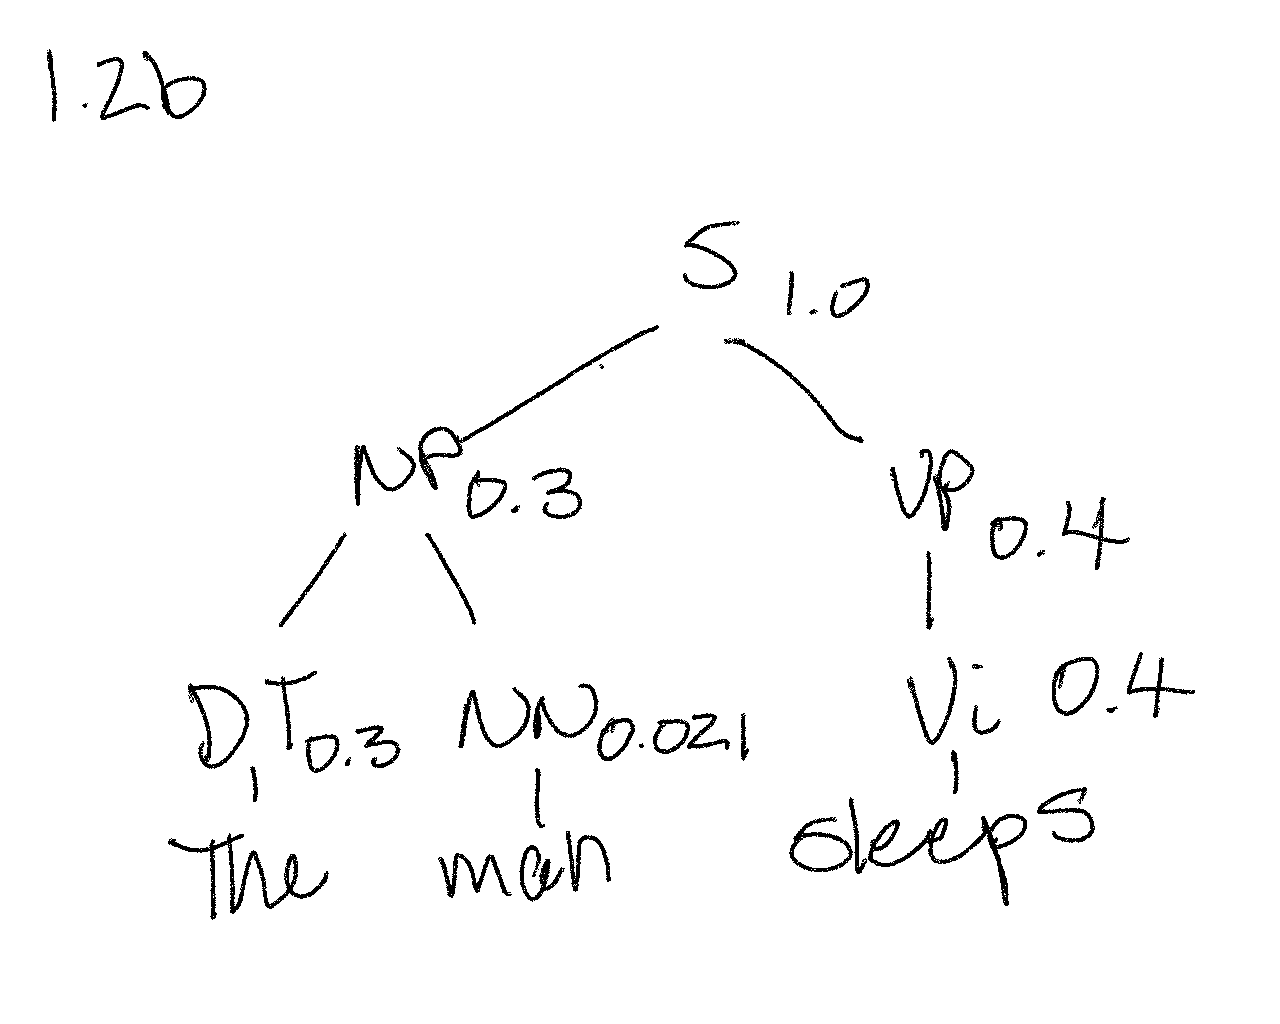 1.2b
S 1.0
NP 0.3 VP 0.4
DT 0.3 NN 0.021 Vi 0.4
The man sleeps